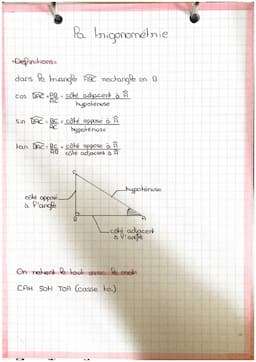 La trigonométrie
Définitions:
dans le triangle ABC rectangle en B
cos BAC = AB/AC = côté adjacent à A/hypoténuse
sin BAC = BC/AC = côté opposé à A/hypoténuse
tan BAC = BC/AB = côté opposé à A/côté adjacent à A
C
hypoténuse
côté opposé
à l'angle
B
A
côté adjacent
à l'angle
On retient le tout avec le mot:
CAH SOH TOA (casse toi)